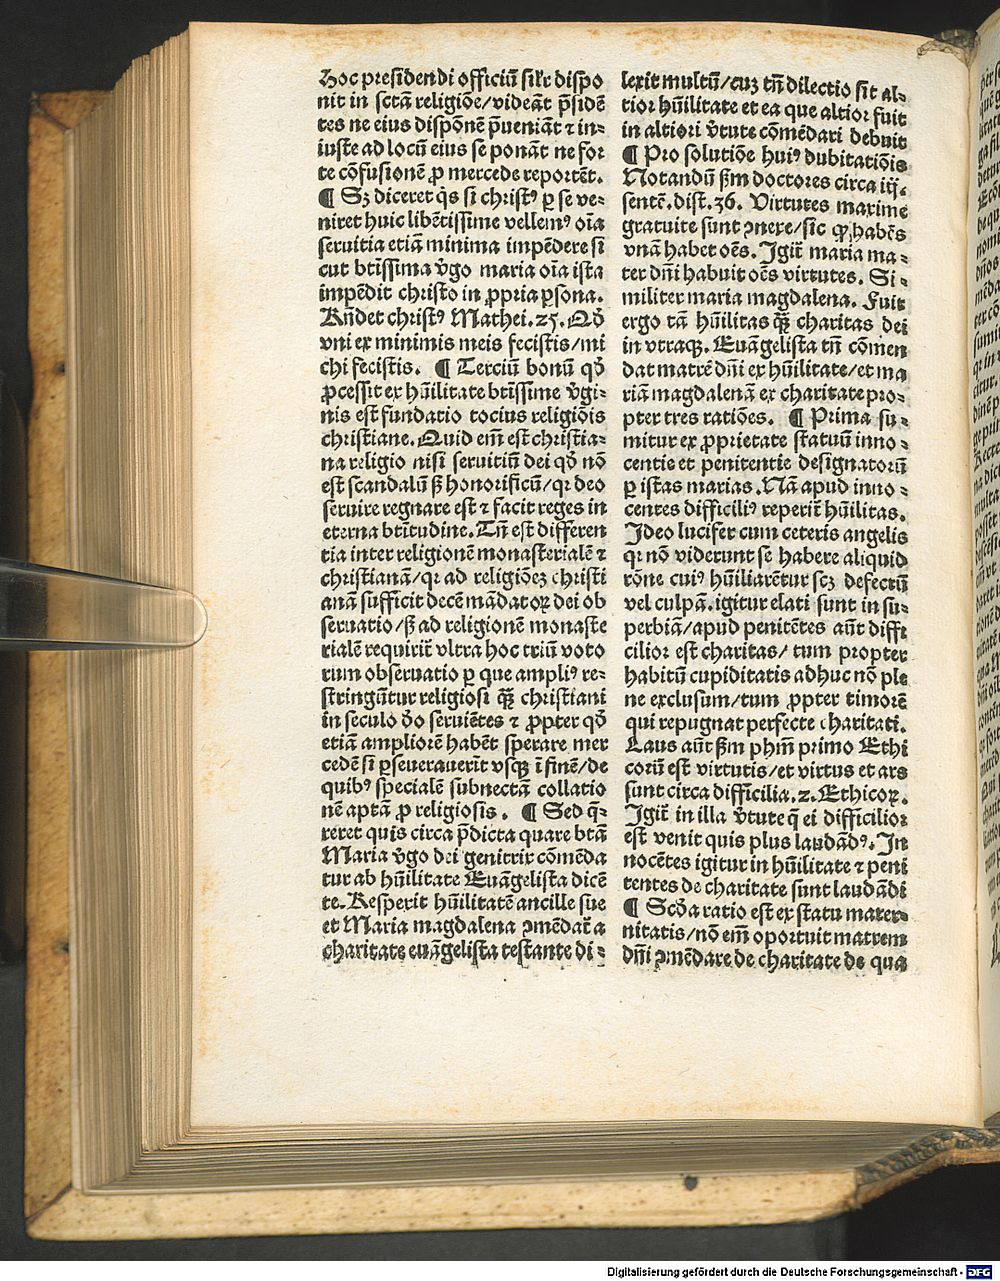 hoc presidendi officiū sil'r dispo
nit in sctā religiōe/videāt p̄sidē
tes ne eius dispōnē p̄ueniāt ⁊ in-
iuste ad locū eius se ponāt ne for
te cōfusionē ꝓ mercede reportēt.
¶ Sꝫ diceret q̄s si christꝰ ꝑ se ve-
niret huic libētissime vellemꝰ oīa
seruitia etiā minima impēdere si
cut btīssima v̄go maria oīa ista
impēdit christo in ꝓpria ꝑsona.
Rn̄det christꝰ Mathei.25. Qd̄
vni ex minimis meis fecistis/mi
chi fecistis. ¶ Terciū bonū qd̄
ꝓcessit ex hūilitate btīssime v̄gi-
nis est fundatio tocius religiōis
christiane. Quid em̄ est christia-
na religio nisi seruitiū dei qd̄ nō
est scandalū sꝫ honorificū/qr deo
seruire regnare est ⁊ facit reges in
eterna btītudine. Tn̄ est differen
tia inter religionē monasterialē ⁊
christianā/qr ad religiōeꝫ christi
anā sufficit decē mādatoꝝ dei ob
seruatio/sꝫ ad religionē monaste
rialē requirit̄ vltra hoc triū voto
rum obseruatio ꝑ que ampliꝰ re-
stringūtur religiosi qꝫ̄ christiani
in seculo v̄o seruiētes ⁊ ꝓpter qd̄
etiā ampliorē habēt sperare mer
cedē si ꝑseuerauerit vsqꝫ ī finē/de
quibꝰ specialē subnectā collatio
nē aptā ꝓ religiosis. ¶ Sed q̄-
reret quis circa p̄dicta quare btā
Maria v̄go dei genitrix cōmēda
tur ab hūilitate Euāgelista dicē
te. Respexit hūilitatē ancille sue
et Maria magdalena ꝯmēdat̄ a
charitate euāgelista testante di-
lexit multū/cuꝫ tn̄ dilectio sit al-
tior hūilitate et ea que altior fuit
in altiori v̄tute cōmēdari debuit
¶ Pro solutiōe huiꝰ dubitatiōis
Notandū ßm doctores circa iij.
sentē.dist.36. Virtutes maxime
gratuite sunt ꝯnexe/sic ꝙ habēs
vnā habet oēs. Igit̄ maria ma-
ter dn̄i habuit oēs virtutes. Si-
militer maria magdalena. Fuit
ergo tā hūilitas qꝫ̄ charitas dei
in vtraqꝫ. Euāgelista tn̄ cōmen
dat matrē dn̄i ex hūilitate/et ma
riā magdalenā ex charitate pro-
pter tres ratiōes. ¶ Prima su-
mitur ex ꝓprietate statuū inno-
centie et penitentie designatorū
ꝑ istas marias. Nā apud inno-
centes difficiliꝰ reperit̄ hūilitas.
Ideo lucifer cum ceteris angelis
qr nō viderunt se habere aliquid
rōne cuiꝰ hūiliarētur scꝫ defectū
vel culpā. igitur elati sunt in su-
perbiā/apud penitētes aūt diffi
cilior est charitas/ tum propter
habitū cupiditatis adhuc nō ple
ne exclusum/tum ꝓpter timorē
qui repugnat perfecte charitati.
Laus aūt ßm phm̄ primo Ethi
corū est virtutis/et virtus et ars
sunt circa difficilia.2.Ethicoꝝ.
Igit̄ in illa v̄tute q̄ ei difficilior
est venit quis plus laudādꝰ. In
nocētes igitur in hūilitate ⁊ peni
tentes de charitate sunt laudādi
¶ Scd̄a ratio est ex statu mater-
nitatis/nō em̄ oportuit matrem
dn̄i ꝯmēdare de charitate de qua
Digitalisierung gefördert durch die Deutsche Forschungsgemeinschaft - DFG